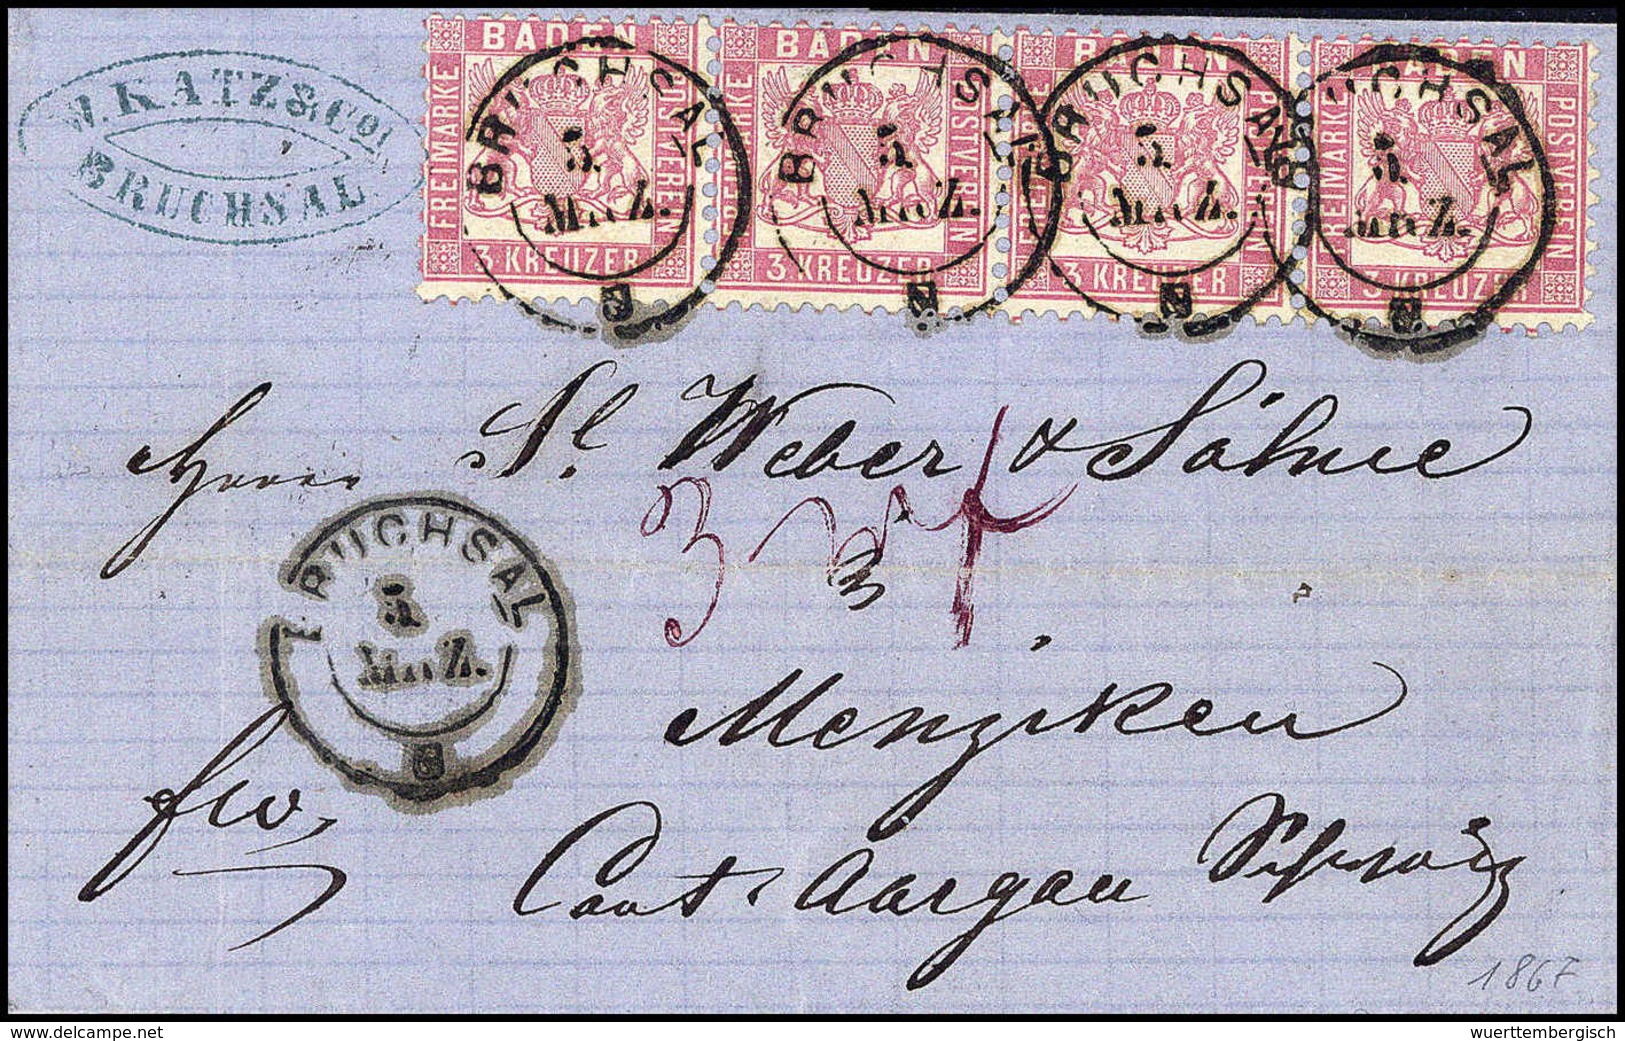 W. KATZ & Co.
BRUCHSAL
BADEN
FREIMARKE
POSTVEREIN
3 KREUZER
BRUCHSAL
5.
Mrz.
BADEN
FREIMARKE
POSTVEREIN
3 KREUZER
BRUCHSAL
5.
Mrz.
BADEN
FREIMARKE
POSTVEREIN
3 KREUZER
BRUCHSAL
5.
Mrz.
BADEN
FREIMARKE
POSTVEREIN
3 KREUZER
BRUCHSAL
5.
Mrz.
Herren Sl. Weber & Söhne
3
3
BRUCHSAL
5.
Mrz.
Menziken
fco.
Cant. Aargau Schweiz
1867
www.delcampe.net
wuerttembergisch